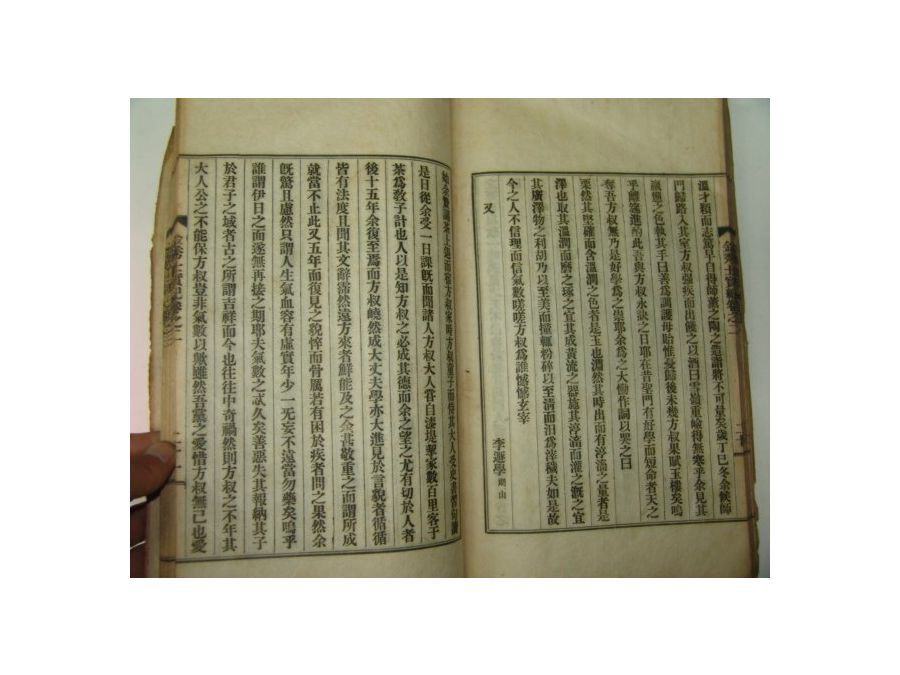 溫才穎而志篤早自得師薰之陶之造詣將不可量矣歲丁巳冬余候師
門歸路入其室方叔强疾而出饋之以酒曰雪嶺重嶮得無寒乎余見其
色執其手曰善爲調護毋貽惟憂歸後未幾方叔果賦玉樓矣嗚
乎離筵進酌此吾與方叔永訣之日耶在昔聖門有好學而短命者天之
奪吾方叔無乃是好學爲之祟耶余爲之大慟作詞以哭之曰
栗然其堅確而含溫潤之色者是玉也淵然其時出而有渟滀之量者是
澤也取其溫潤而磨之琢之宜其成黃流之器施其渟滀而灌之漑之宜
其廣澤物之利胡乃以至美而撞輒粉碎以至淸而汨爲滓穢夫如是故
今之人不信理而信氣數嗟嗟方叔爲誰憾憾玄宰
又 李遜學
是日從余受一日課旣而聞諸人方叔大人甞自漆堤挈家數百里客于
茶爲敎子計也人以是知方叔之必成其德而余之望之尤有切於人者
後十五年余復至焉而方叔嶢然成大丈夫學亦大進見於言貌者循循
皆有法度且聞其文辭蔚然遠方來者鮮能及之余甚敬重之而謂所成
就當不止此又五年而復見之貌悴而骨厲若有困於疾者問之果然余
旣驚且慮然只謂人生氣血容有虛實年少一无妄不遠當勿藥矣嗚乎
誰謂伊日之面遂無再接之期耶夫氣數之忒久矣善惡失其報納其子
於君子之域者古之所謂吉祥而今也往往中奇禍然則方叔之不年其
大人公之不能保方叔豈非氣數以歟雖然吾黨之愛惜方叔無已也愛